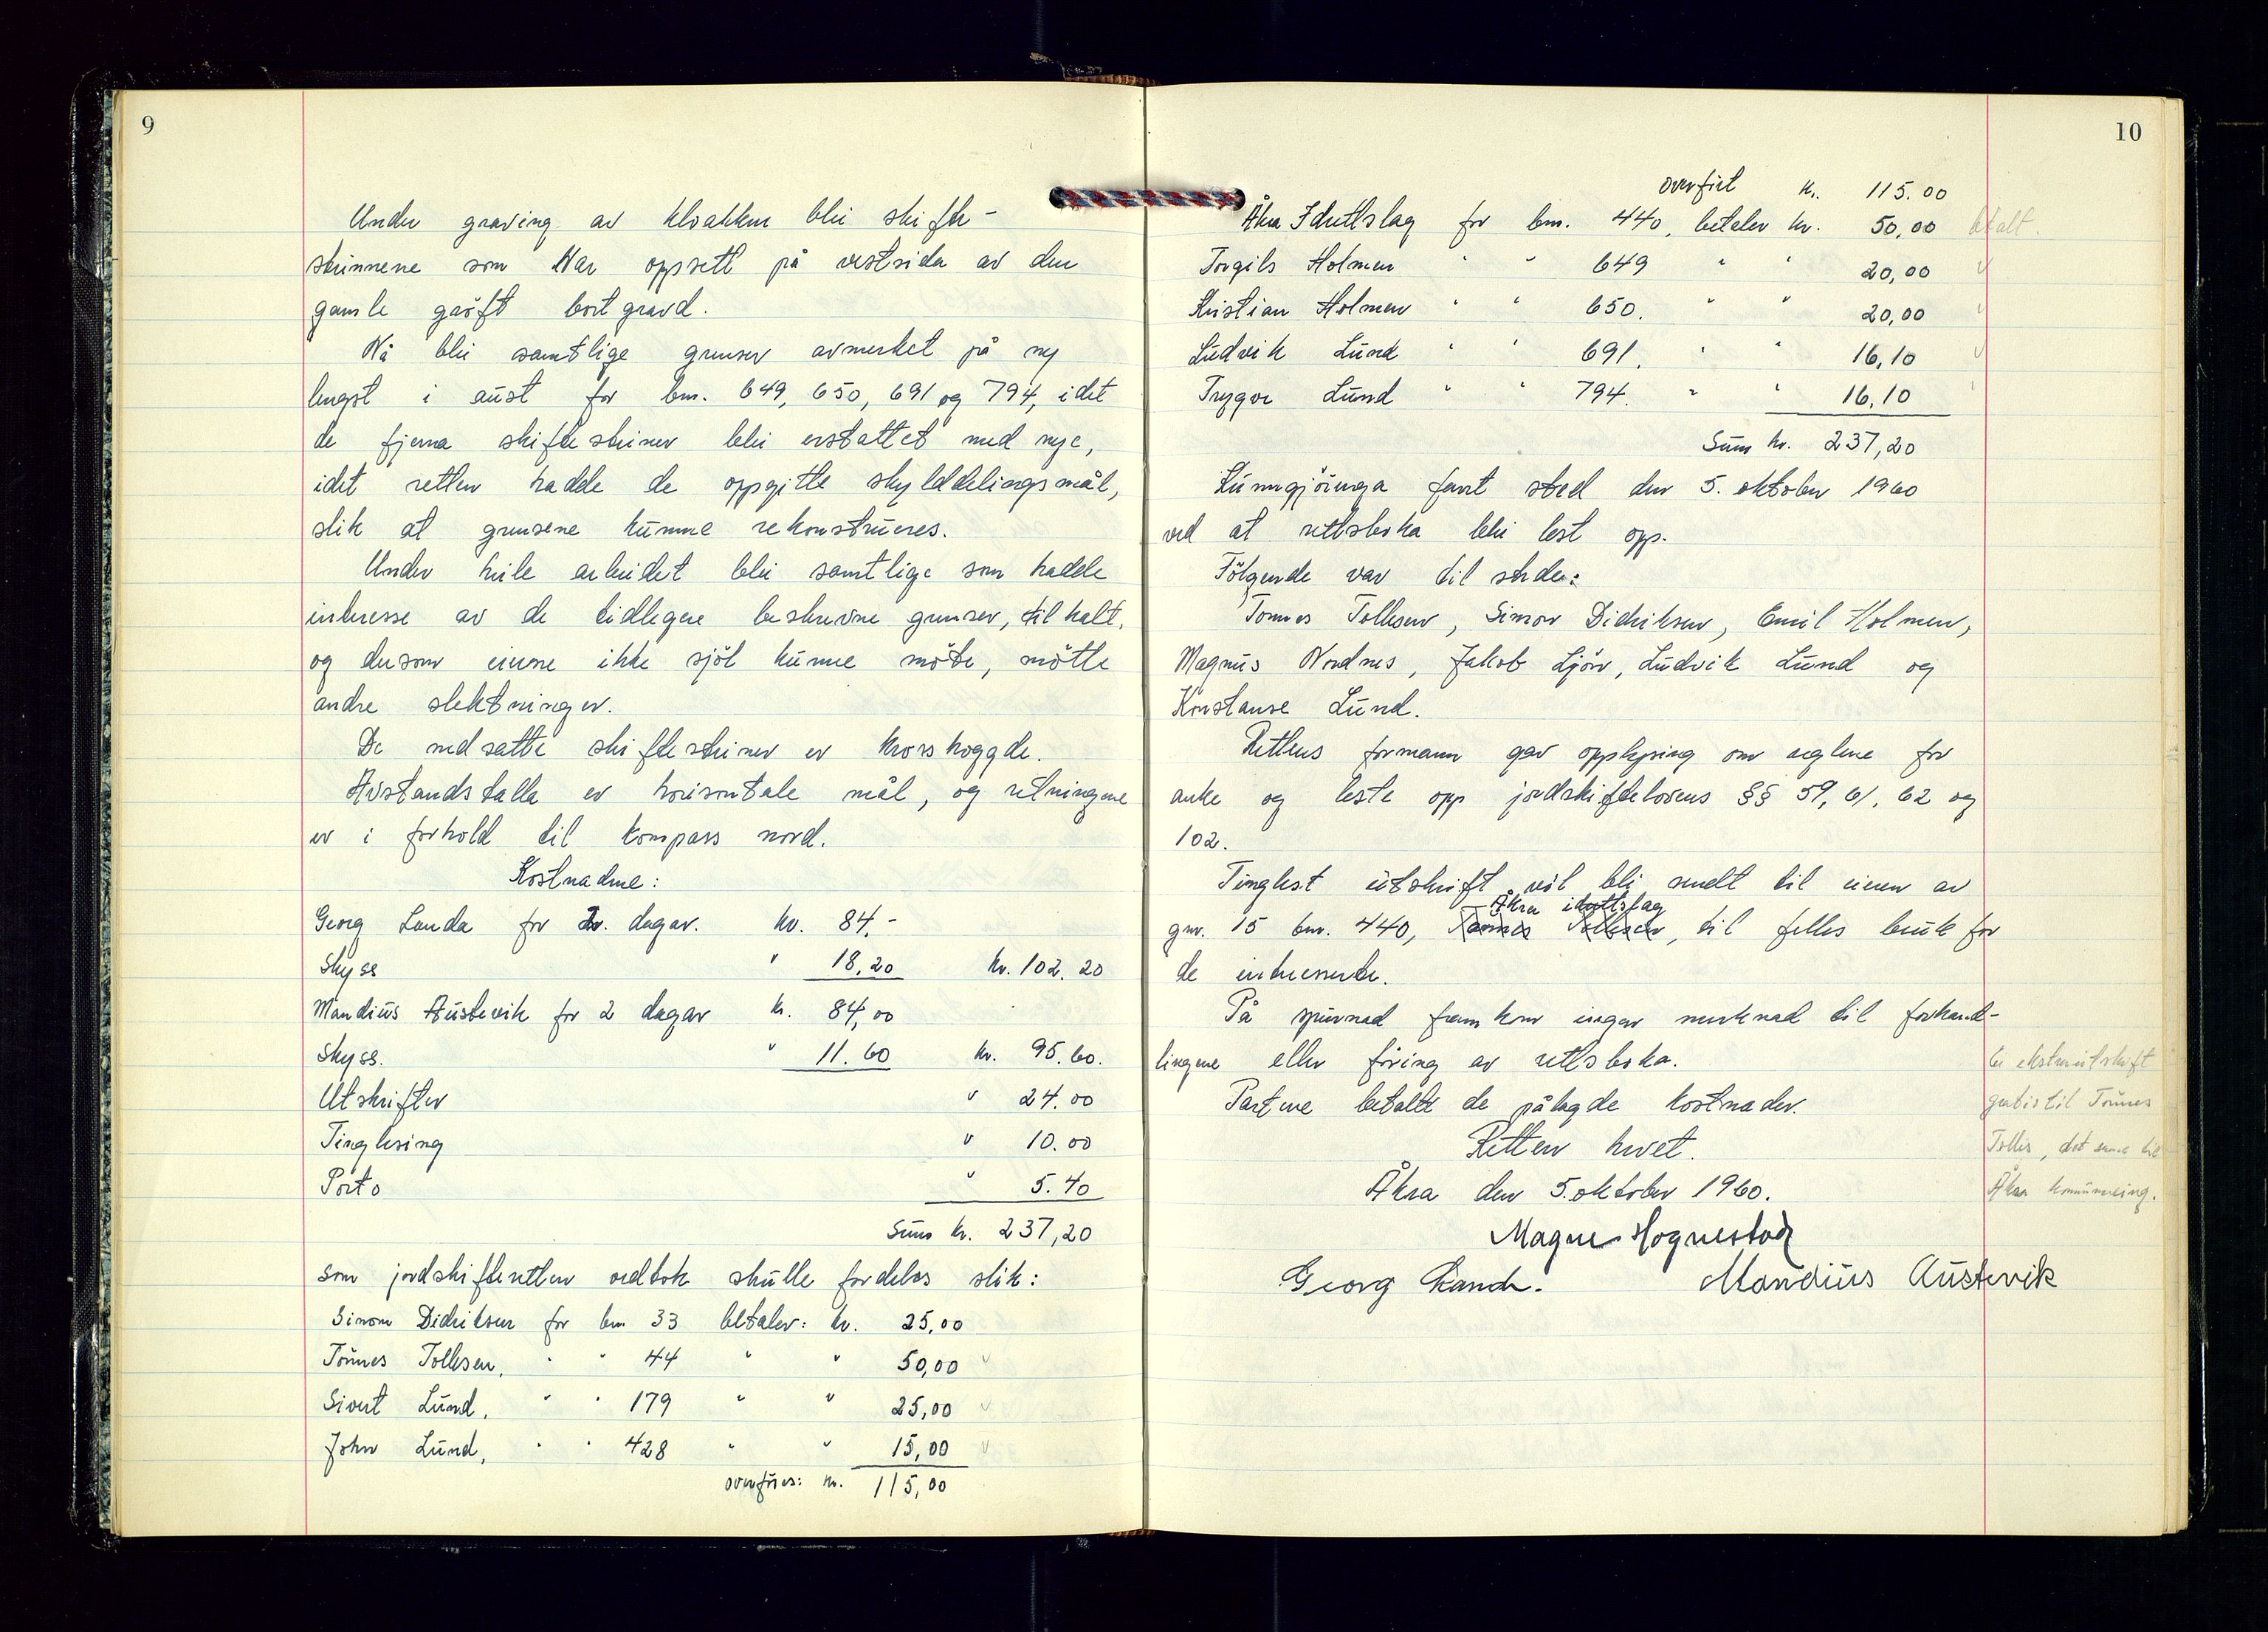 9
Under graving av kloakken blei skifte-
steinnene som var oppsett på vestsida av den
gamle grøft bortgravd.
Nå blei samtlige grenser avmerket på ny
lengst i aust for bnr. 649, 650, 691 og 794, idet
de fjerna skiftesteiner blei erstattet med nye,
idet retten hadde de oppgitte skylddelingsmål,
slik at grensene kunne rekonstrueres.
Under heile arbeidet blei samtlige som hadde
interesse av de tidlegere beskrevne grenser, tilkalt,
og dersom einne ikke sjøl kunne møte, møtte
andre slektninger.
De nedsatte skiftesteiner er krosshoggde.
Avstandstalla er horisontale mål, og retningene
er i forhold til kompass nord.
Kostnadene:
Georg Landa for 2. dagar. kr. 84,-
Skyss " 18,20 kr. 102.20
Mandius Austevik for 2 dagar kr. 84,00
Skyss. " 11.60 kr. 95.60.
Utskrifter " 24.00
Tinglesing " 10.00
Porto " 5.40
Sum kr. 237,20
som jordskifteretten vedtok skulle fordeles slik:
Simon Didriksen for bnr 33 betaler: kr. 25,00
Tønnes Tollesen, " " 44 " " 50,00 v
Sivert Lund, " " 179 " " 25,00 v
John Lund, " " 428 " " 15,00 v
overføres: kr. 115,00
10
overført kr. 115.00
Åkra Idrettslag for bnr. 440, betaler kr. 50,00 betalt.
Torgils Holmen " " 649 " " 20,00 v
Kristian Holmen " " 650. " " 20,00 v
Ludvik Lund " " 691. " " 16,10 v
Trygve Lund " " 794. " " 16,10
Sum kr. 237,20
Kunngjøringa fant sted den 5. oktober 1960
ved at rettsboka blei lest opp.
Følgende var til stede:
Tønnes Tollesen, Simon Didriksen, Emil Holmen,
Magnus Nordnes, Jakob Ljøn, Ludvik Lund og
Konstanse Lund.
Rettens formann gav opplysing om reglene for
anke og leste opp jordskiftelovens §§ 59, 61, 62 og
102.
Tinglest utskrift vil bli sendt til eieren av
Åkra idrettslag
gnr. 15 bnr. 440, Tønnes Tollesen, til felles bruk for
de interesserte.
På spørnad framkom ingen merknad til forhand-
lingene eller føring av rettsboka.
Partene betalte de pålagde kostnader.
Retten hevet.
Åkra den 5. oktober 1960.
Magne Hognestad
Georg Landa. Mandius Austevik
ekstrautskrift
gratis til Tønnes
Tolles, det samme til
Åkra kommuneing.